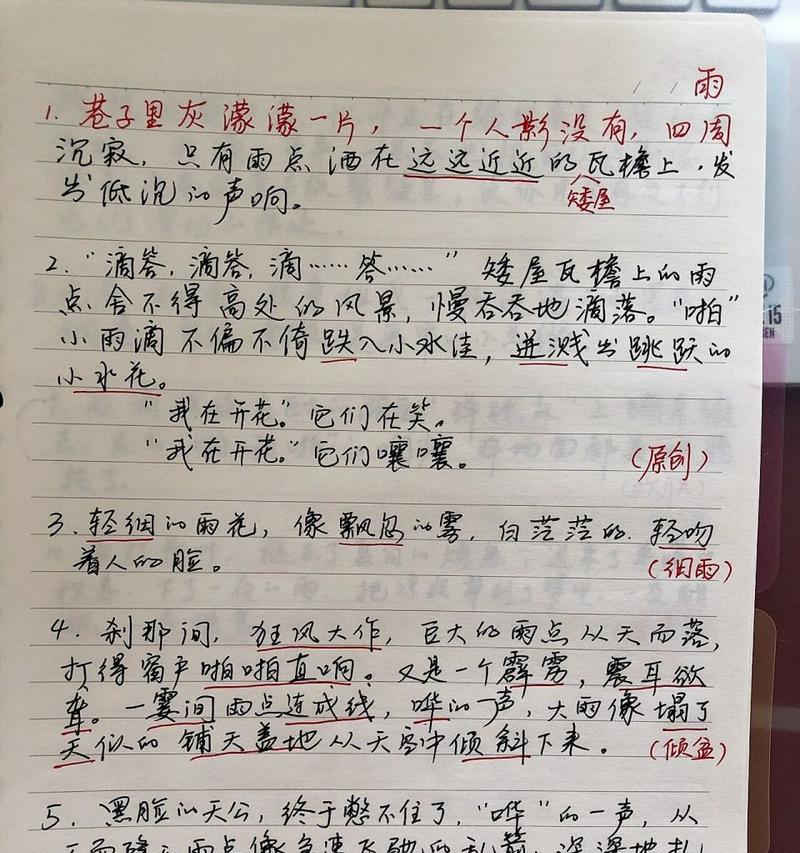 雨
1. 巷子里灰濛濛一片，一个人影没有，四周
沉寂，只有雨点洒在远远近近的瓦檐上，发
矮屋
出低沉的声响。
2. “滴答，滴答，滴……答……” 矮屋瓦檐上的雨
点舍不得高处的风景，慢吞吞地滴落。“啪”
小雨滴不偏不倚跌入小水洼，迸溅出跳跃的
小水花。
“我在开花。”它们在笑。
“我在开花。”它们嚷嚷。
（原创）
3. 轻细的雨花，像飘忽的雾，白茫茫的，轻吻
着人的脸。
（细雨）
4. 刹那间，狂风大作，巨大的雨点从天而落，
打得窗户啪啪直响。又是一个霹雳，震耳欲
聋。一霎间雨点连成线，哗的一声，大雨像塌了
天似的铺天盖地从天空中倾斜下来。
（倾盆）
5. 黑脸的天公，终于憋不住了，“哗”的一声，从
15